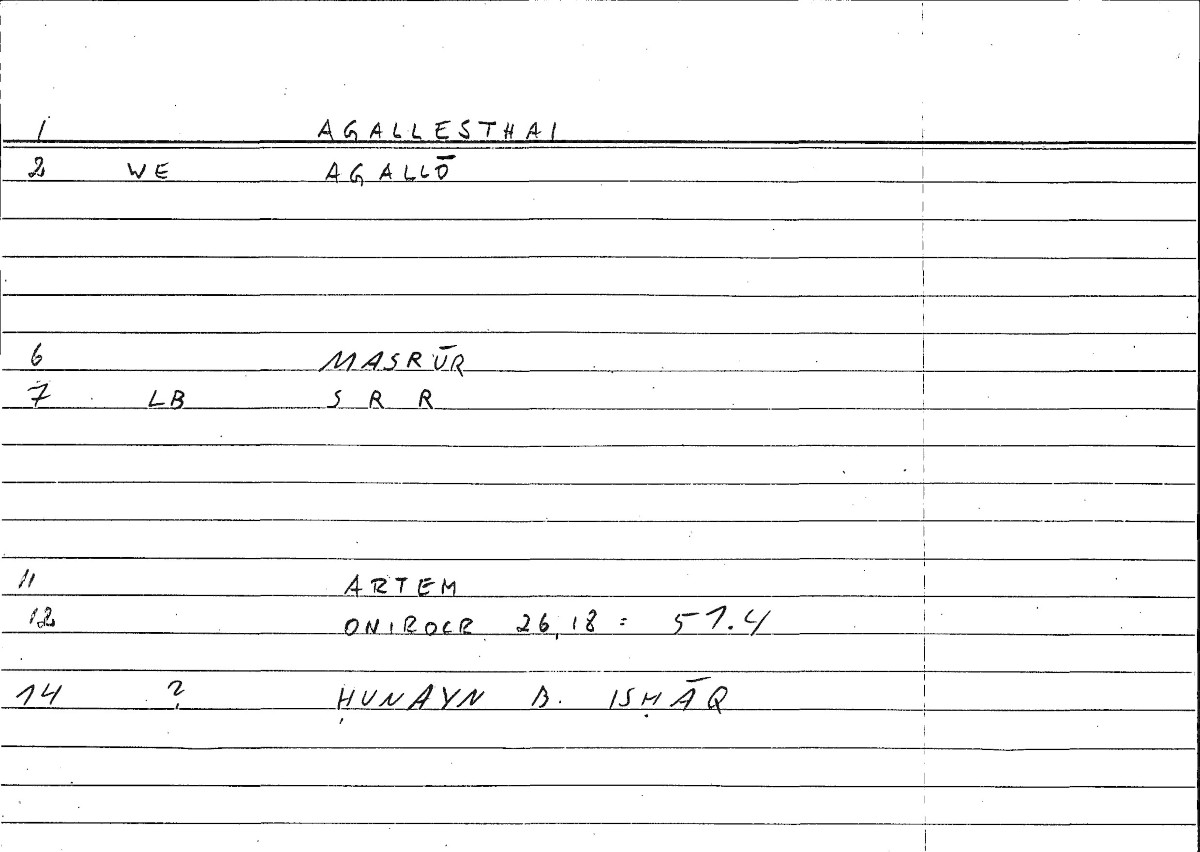 1 AGALLESTHAI
2 WE AGALLŌ
6 MASRŪR
7 LB S R R
11 ARTEM
12 ONIROCR 26,18 = 57.4
14 ? ḤUNAYN B. ISḤĀQ